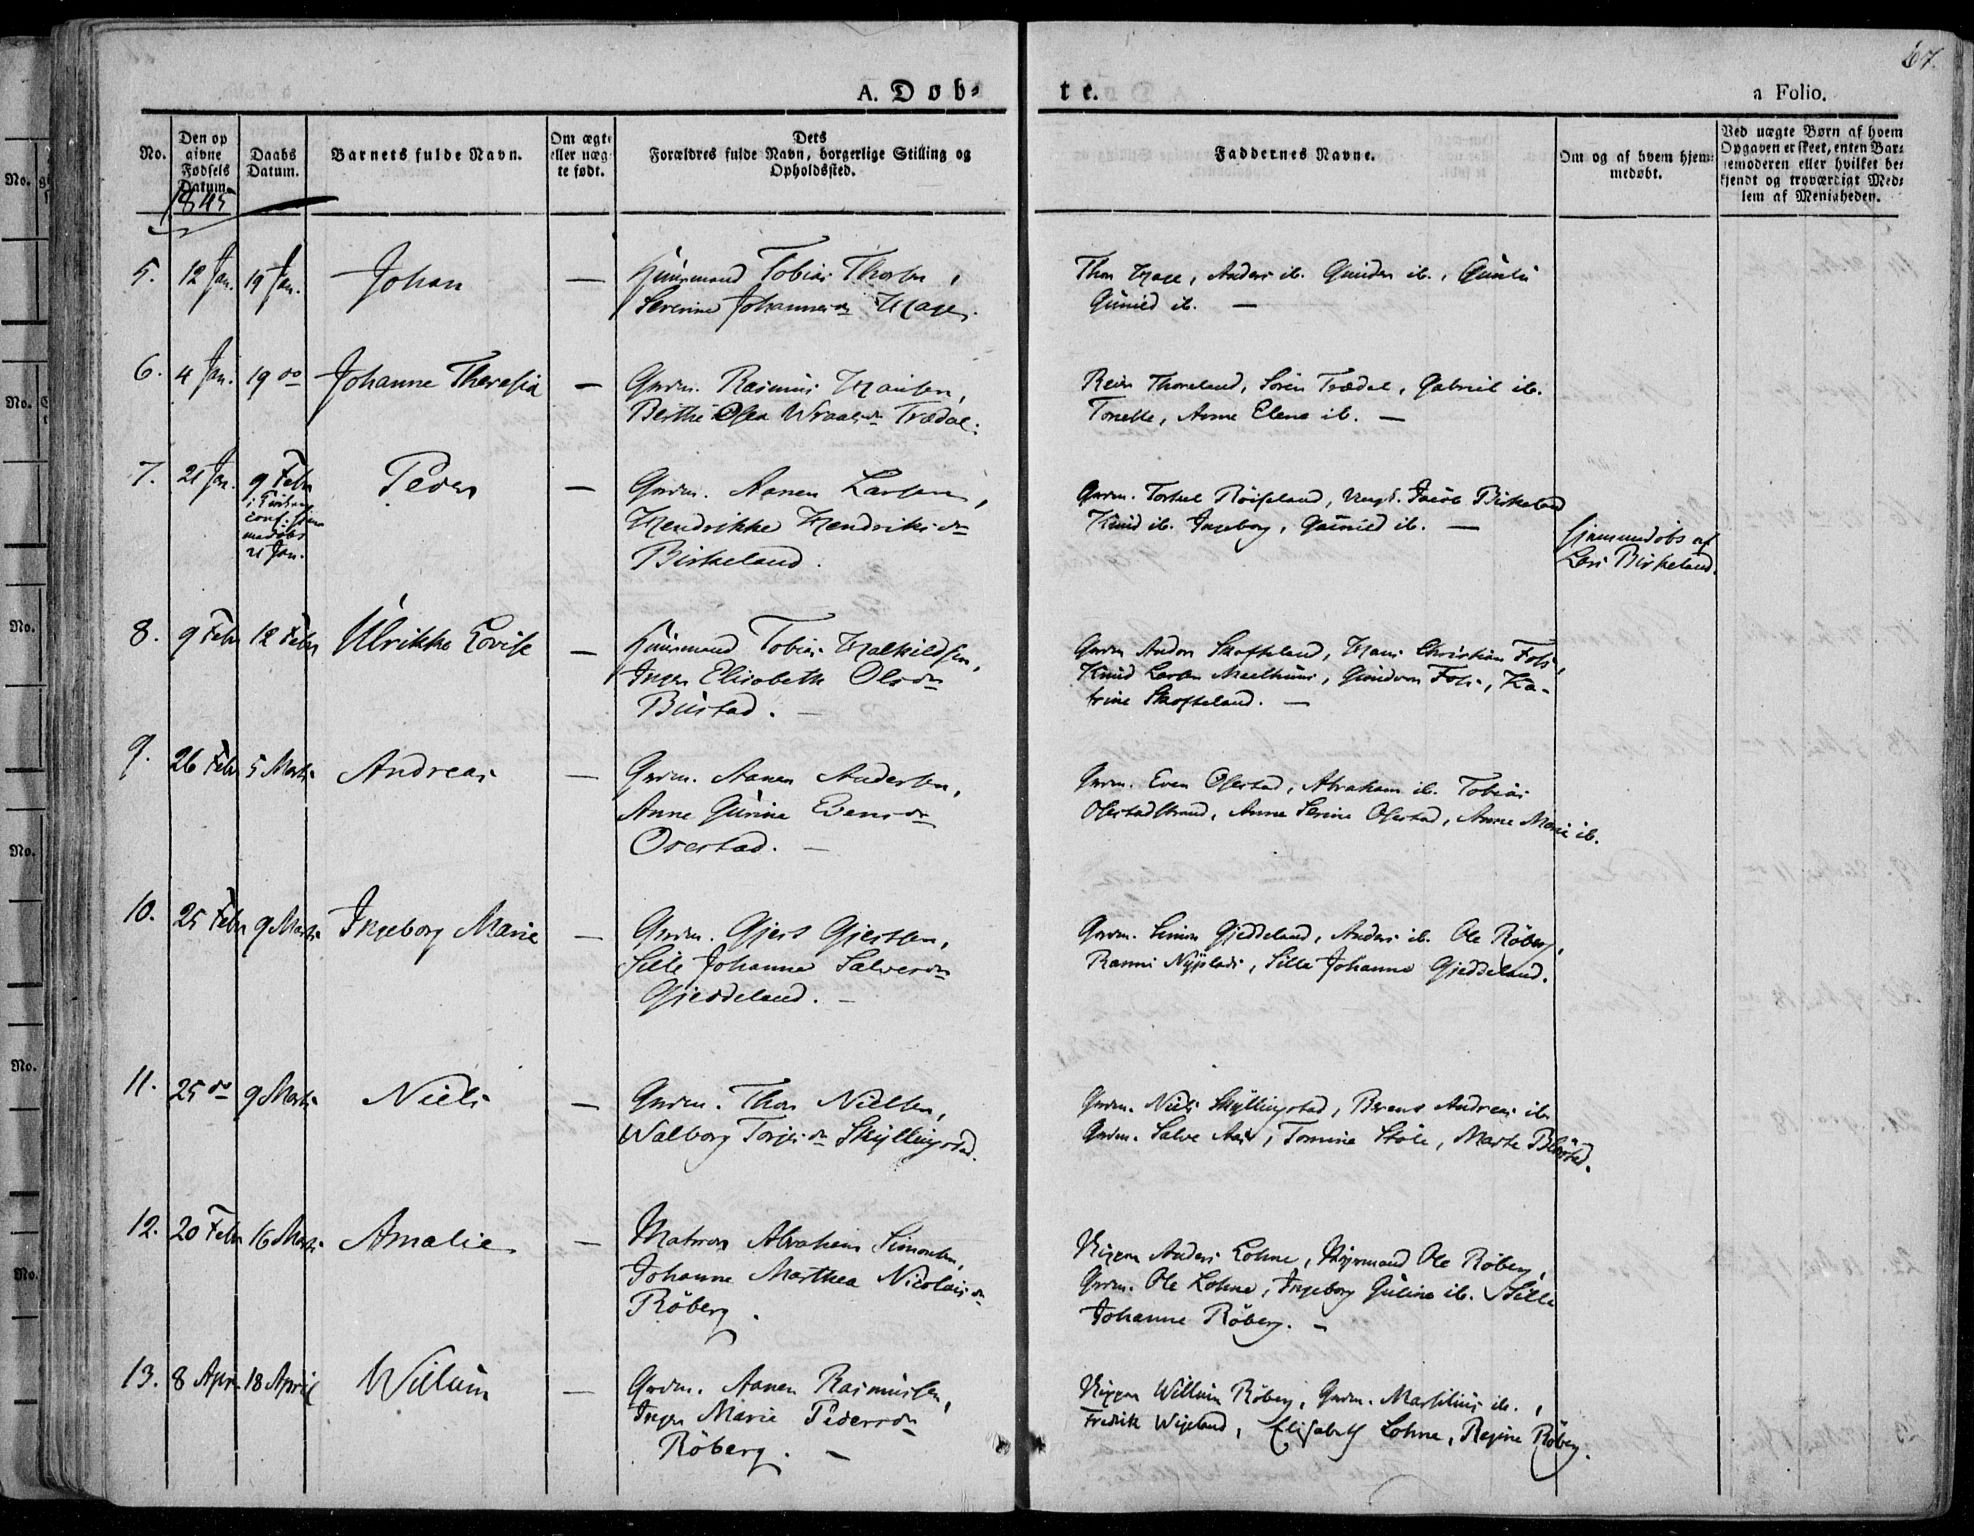 67.
A. Døb-
te.
a Folio.
No.
Den opgivne Fødsels Datum.
Daabs Datum.
Barnets fulde Navn.
Om ægte eller uægte født.
Dets Forældres fulde Navn, borgerlige Stilling og Opholdssted.
Faddernes Navne.
Om og af hvem hjemmedøbt.
Ved uægte Børn af hvem Opgaven er skeet, enten Barnemoderen eller hvilket bekjendt og troværdigt Medlem af Menigheden.
1845
5. 12 Jan. 19 Jan. Johan — Huusmand Tobias Thorsen,
Severine Johannesdr
Thor, Anders ib. Gunder ib.,
Gunild ib. —
6. 4 Jan. 19 do Johanne Theresia — Grdm. Rasmus Hansen,
Berthe Osea Wraalsdr Trædal.
Reier Thoreland, Sören Trædal, Gabriel ib.
Tonette, Anne Elene ib. —
7. 21 Jan. 9 Febr
21 Jan.
Peder — Grdm. Aanen Larsen,
Hendrikke Hendriksdr
Birkeland.
Grdm. Torkel Röiseland, Ungk. Jacob Birkeland
Knud ib. Ingeborg, Gunild ib. —
hjemmedöbt af
Lars Birkeland.
8. 9 Febr 12 Febr Ulrikke Lovise — Huusmand Tobias
Inger Elisabeth Olsdr
Bustad. —
Grdm Anders Skofteland, Hans Christian Foss,
Knud Larsen, Foss, Ka-
trine Skofteland. —
9. 26 Febr 5 Marts Andreas — Grdm. Aanen Andersen,
Anne Gurine Evensdr
Osestad. —
Grdm. Even Osestad, Abraham ib. Tobias
Osestadstrand, Anne Serine Osestad, Anne Marie ib.
10. 25 Febr 9 Marts Ingeborg Marie — Grdm. Gjert Gjertsen,
Sille Johanne Salvesdr
Gjeddeland. —
Grdm. Simon Gjeddeland, Anders ib. Ole Röberg,
Sille Johanne Gjeddeland.
11. 25 do 9 Marts Niels — Grdm. Thor Nielsen,
Walborg Torjesdr Skyllingstad.
Grdm. Niels Skyllingstad, Berent Andreas ib.
Grdm. Salve Aas, Tomine Stöle, Marte
12. 20 Febr 16 Marts Amalie — Matros Abraham Simonsen,
Johanne Marthea Nicolaisdr
Röberg.
Anders Lohne, Ole Röberg,
Grdm. Ole Lohne, Ingeborg Guline ib. Sille
Johanne Röberg. —
13. 8 Apr. 18 April Willum — Grdm. Aanen Rasmussen,
Inger Marie Pedersdr
Röberg. —
Willum Röberg, Grdm. Marselius ib.,
Fredrik Wigeland, Elisabeth Lohne, Regine Röberg.